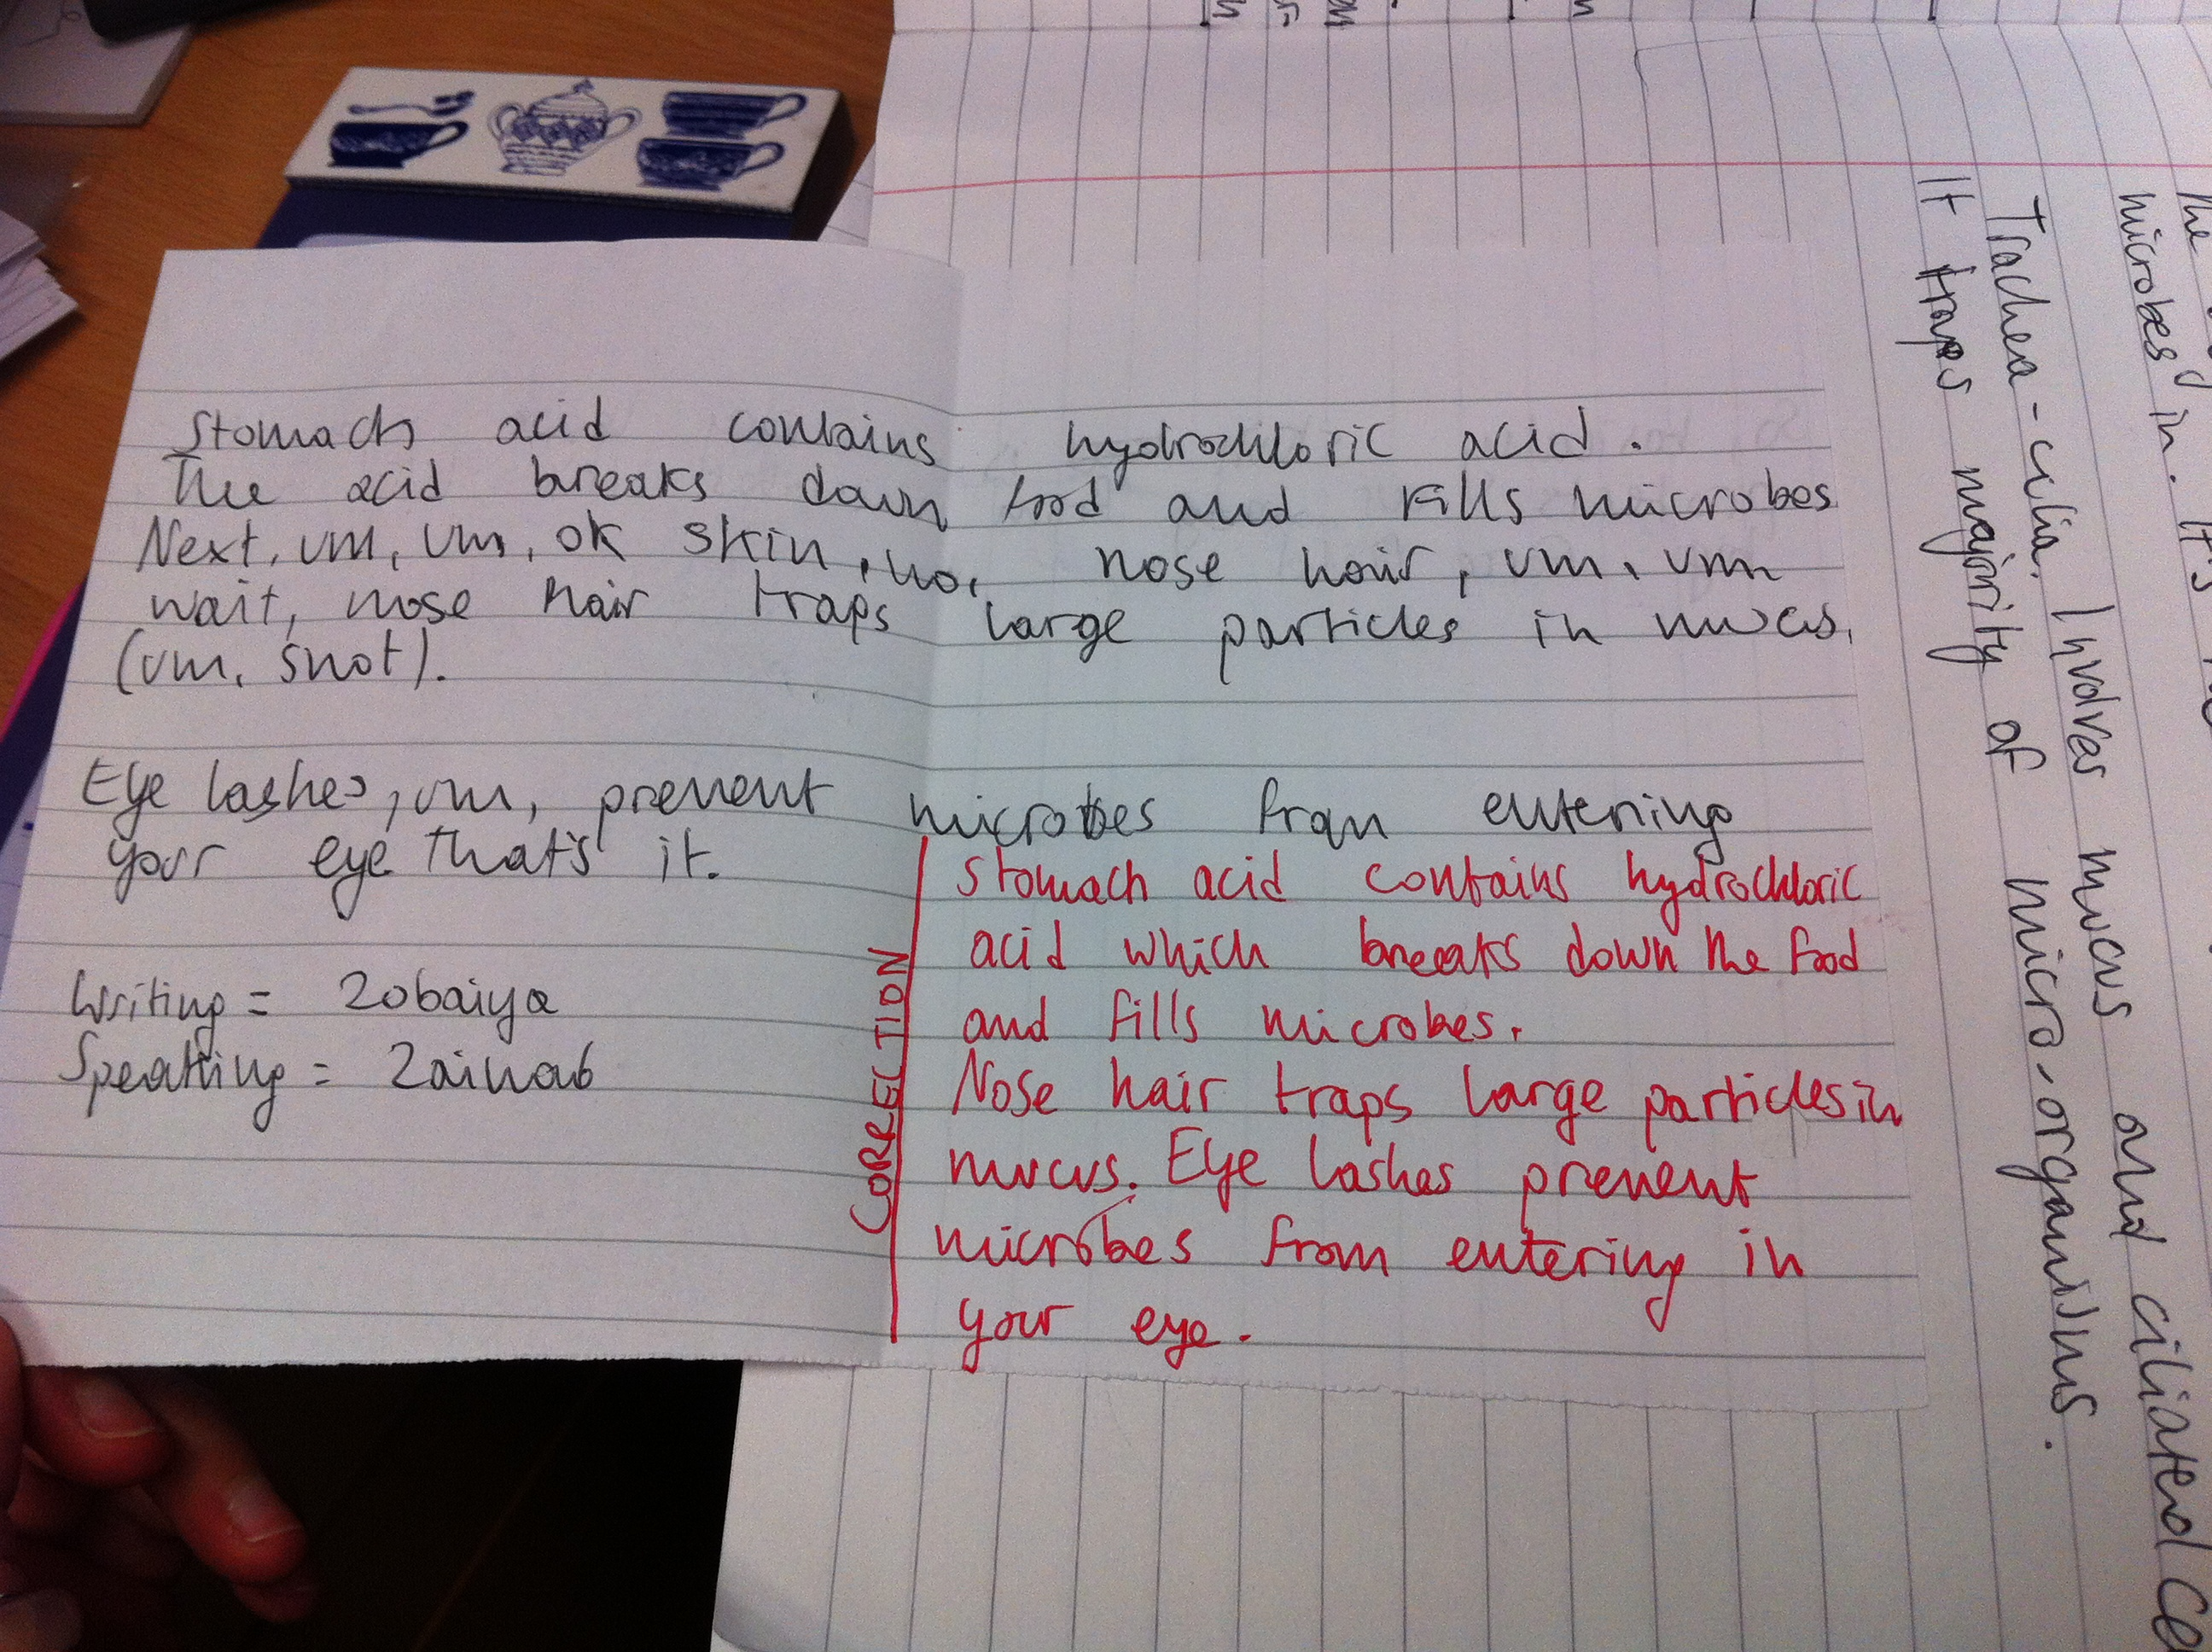 Stomach acid contains hydrochloric acid.
The acid breaks down food and kills microbes
Next, um, um, ok skin, no, nose hair, um, um
wait, nose hair traps large particles in mucus.
(um, snot).
Eye lashes, um, prevent microbes from entering
your eye that's it.
Writing = Zobaiya
Speaking = Zainab
CORRECTION
Stomach acid contains hydrochloric
acid which breaks down the food
and fills microbes.
Nose hair traps large particles in
mucus. Eye lashes prevent
microbes from entering in
your eye.
The
microbes in. It's
Trachea - cilia. Involves mucus and ciliated ce
It traps majority of micro-organisms.